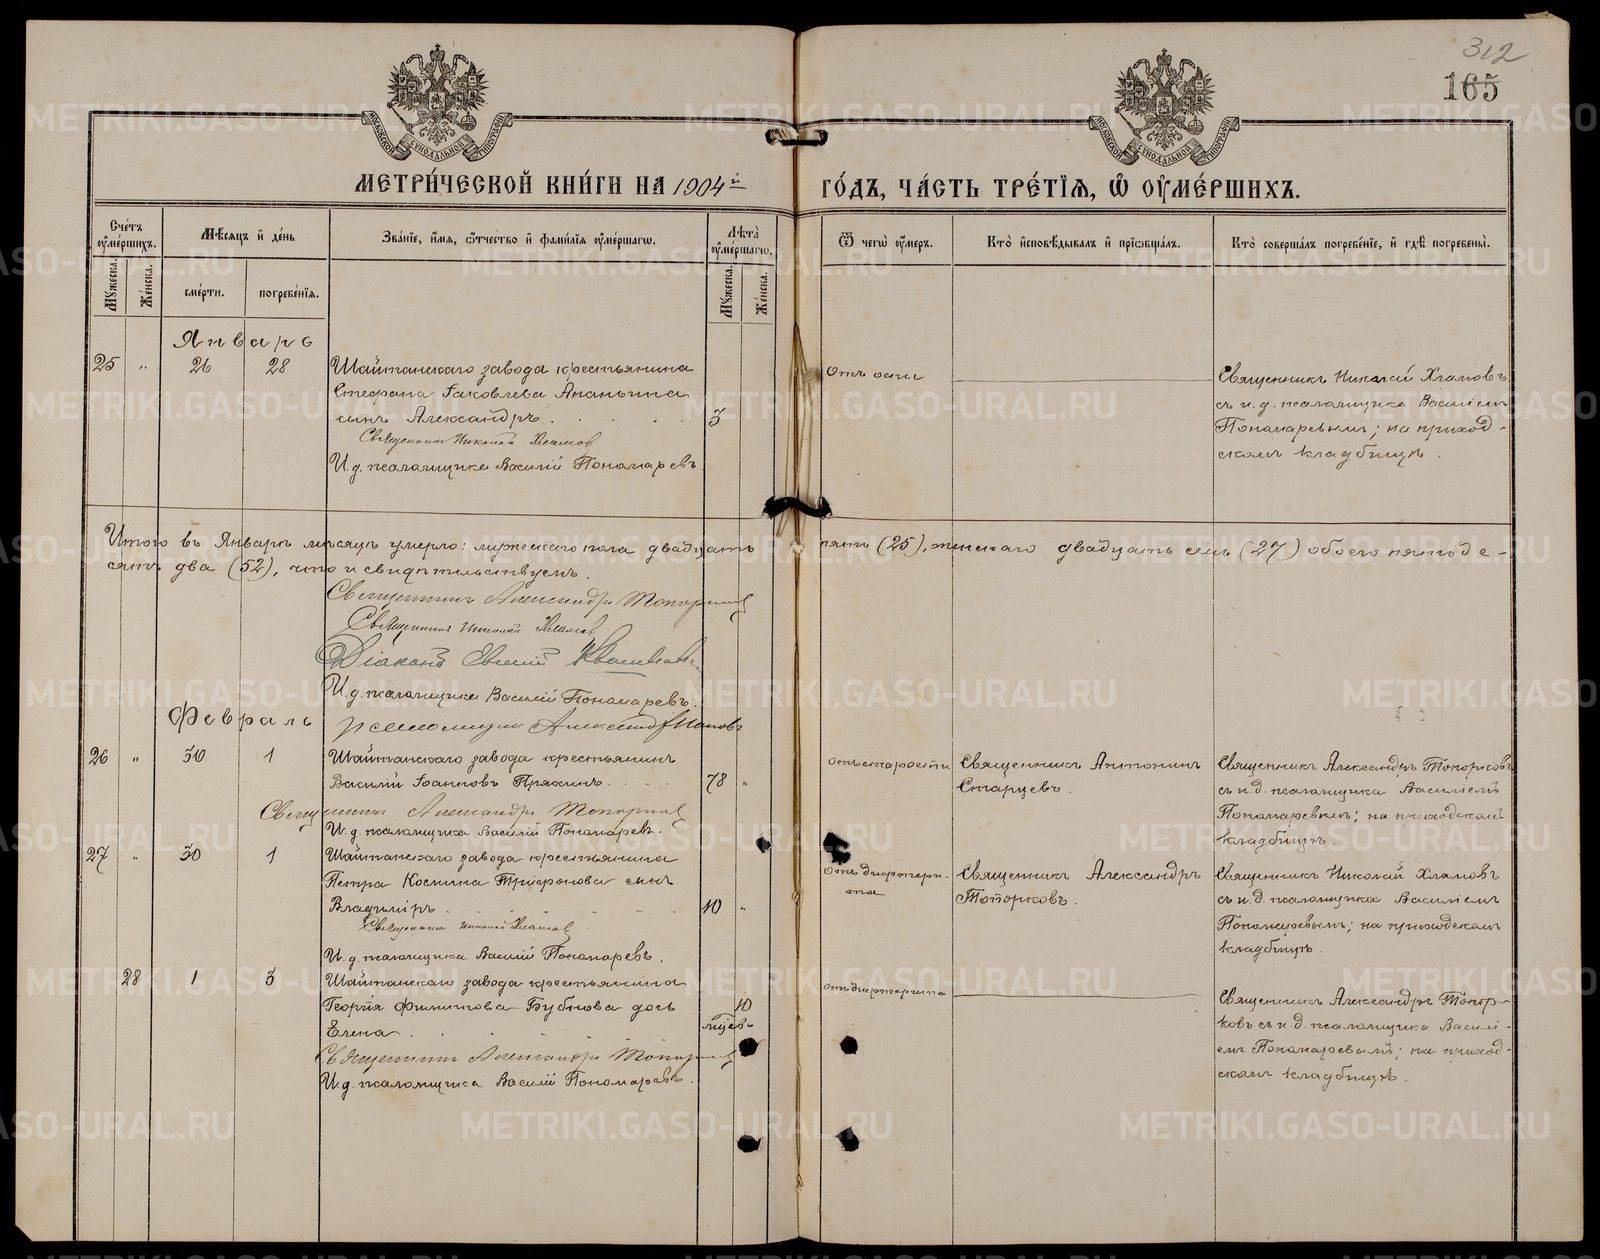 312
165
МОСКОВСКОЙ СѴНОДАЛЬНОЙ ТИПОГРАФІИ
МОСКОВСКОЙ СѴНОДАЛЬНОЙ ТИПОГРАФІИ
МЕТРИ́ЧЕСКОЙ КНИ́ГИ НА 1904й ГО́ДЪ, ЧА́СТЬ ТРЕ́ТІѦ, Ѡ҆ ОУ҆МЕ́РШИХЪ.
Сче́тъ оу҆ме́ршихъ.
Мꙋжеска.
Же́нска.
Мѣ́сяцъ и҆ де́нь
сме́рти.
погребе́нїѧ.
Зва́нїе, и҆́мѧ, ѻ҆́тчество и҆ фами́лїѧ оу҆ме́ршагѡ.
Лѣ́та̀ оу҆ме́ршагѡ.
Мꙋжеска.
Же́нска.
Ѿ чегѡ̀ оу҆́меръ.
Кто̀ и҆сповѣ́дывалъ и҆ прїѡбща́лъ.
Кто̀ соверша́лъ погребе́нїе, и҆ гдѣ̀ погребены̀.
Январь
25 „ 26 28 Шайтанскаго завода крестьянина
Стефана Іаковлева Ананьина
сынъ Александръ . . . . 3
Священникъ Николай Хламов
И.д. псаломщика Василій Пономаревъ
Отъ оспы
Священникъ Николай Хламовъ
съ и.д. псаломщика Василіемъ
Пономаревымъ; на приход-
скомъ кладбищѣ.
Итого въ Январѣ мѣсяцѣ умерло: мужескаго пола двадцать пять (25), женскаго двадцать семь (27) обоего пятьде-
сятъ два (52), что и свидѣтельствуемъ.
Священникъ Александръ Топорков
Священникъ Николай Хламов
Діаконъ Евгеній
И.д. псаломщика Василій Пономаревъ.
Псаломщик Александр Поповъ
Февраль
26 „ 30 1 Шайтанскаго завода крестьянинъ
Василій Іоанновъ Пряхинъ . . . . 78 „
Священникъ Александръ Топорков
И.д. псаломщика Василій Пономаревъ.
Отъ старости
Священникъ Антонинъ
Старцевъ.
Священникъ Александръ Топорковъ
съ и.д. псаломщика Василіемъ
Пономаревымъ; на приходскомъ
кладбищѣ.
27 „ 30 1 Шайтанскаго завода крестьянина
Петра Космина Трифонова сынъ
Владиміръ . . . . 10 „
Священникъ Николай Хламов
И.д. псаломщика Василій Пономаревъ.
Отъ дифтери-
та
Священникъ Александръ
Топорковъ.
Священникъ Николай Хламовъ
съ и.д. псаломщика Василіемъ
Пономаревымъ; на приходскомъ
кладбищѣ.
28 1 3 Шайтанскаго завода крестьянина
Георгія Филиппова Бубнова дочь 10
Елена . . . мѣсяц.
Священникъ Александръ Топорков
И.д. псаломщика Василій Пономаревъ.
Отъ дифтерита
Священникъ Александръ Топор-
ковъ съ и.д. псаломщика Васили-
емъ Пономаревымъ; на приход-
скомъ кладбищѣ.
METRIKI.GASO-URAL.RU